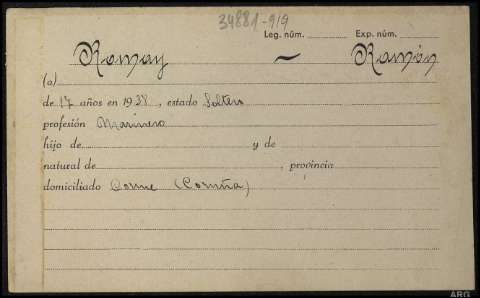 34881-919
Leg. núm. Exp. núm.
Romay ~ Ramón
(a)
de 17 años en 1938, estado Soltero
profesión Marinero
hijo de y de
natural de , provincia
domiciliado Corme (Coruña)
ARG